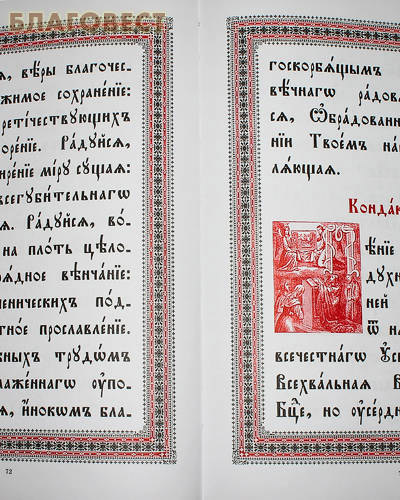 БЛАГОВЕСТ
ѧ, вѣ́ры благочес-
жи́мое сохране́нїе:
рети́чествующихъ
оре́нїе. Ра́дуйсѧ,
ире́нїе мі́ру су́щаѧ:
всегуби́тельнагѡ
ѧ. Ра́дуйсѧ, во́-
на пло́ть цѣ́ло-
рѧ́дное вѣнча́нїе:
ченическихъ по́д-
тное прославле́нїе.
бныхъ трудѡ́мъ
лаже́ннагѡ оупо-
ѧ, и҆́нокѡмъ бла-
72
госкорбѧ́щымъ
вѣ́чнагѡ ра́дова
сѧ, Ѡбра́дованн
нїи Твое́мъ на́с
лѧ́ющаѧ.
Конда́к
ѣ́нїе
духн
ней
ѿ на
всече́стнагѡ Оу҆с
Всехва́льнаѧ Б
Бц҃е, но оусе́рдн